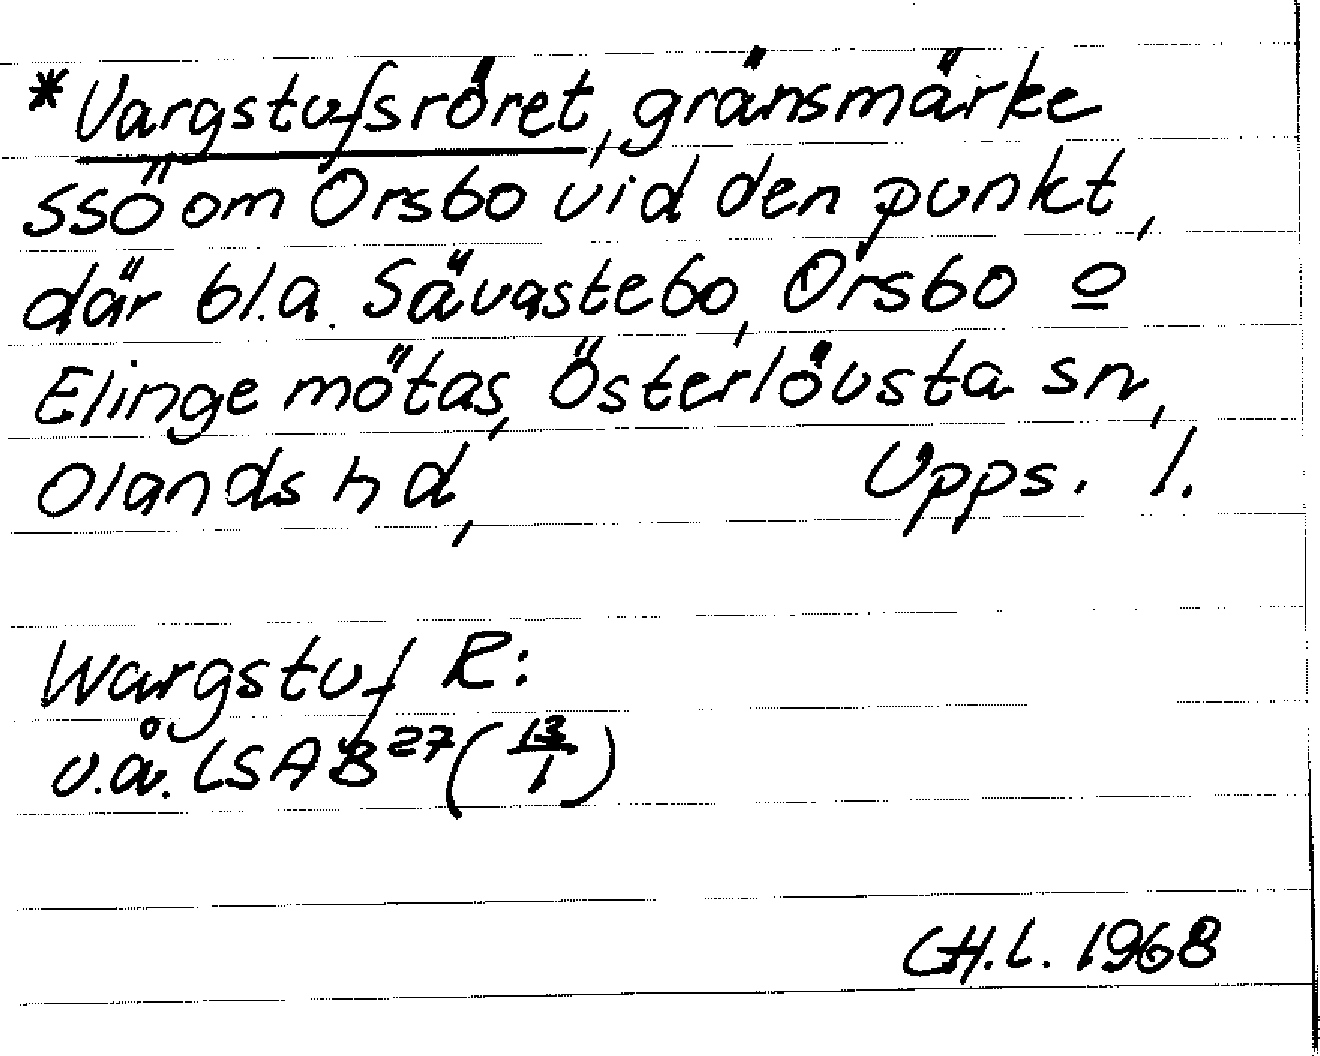 *Vargstufsröret, gränsmärke
SSÖ om Örsbo vid den punkt,
där bl.a. Sävastebo, Örsbo o
Elinge mötas, Österlövsta sn,
Olands hd, Upps. l.
Wargstuf R:
u.å. LSA B 27 (13/1)
C.H.L. 1968